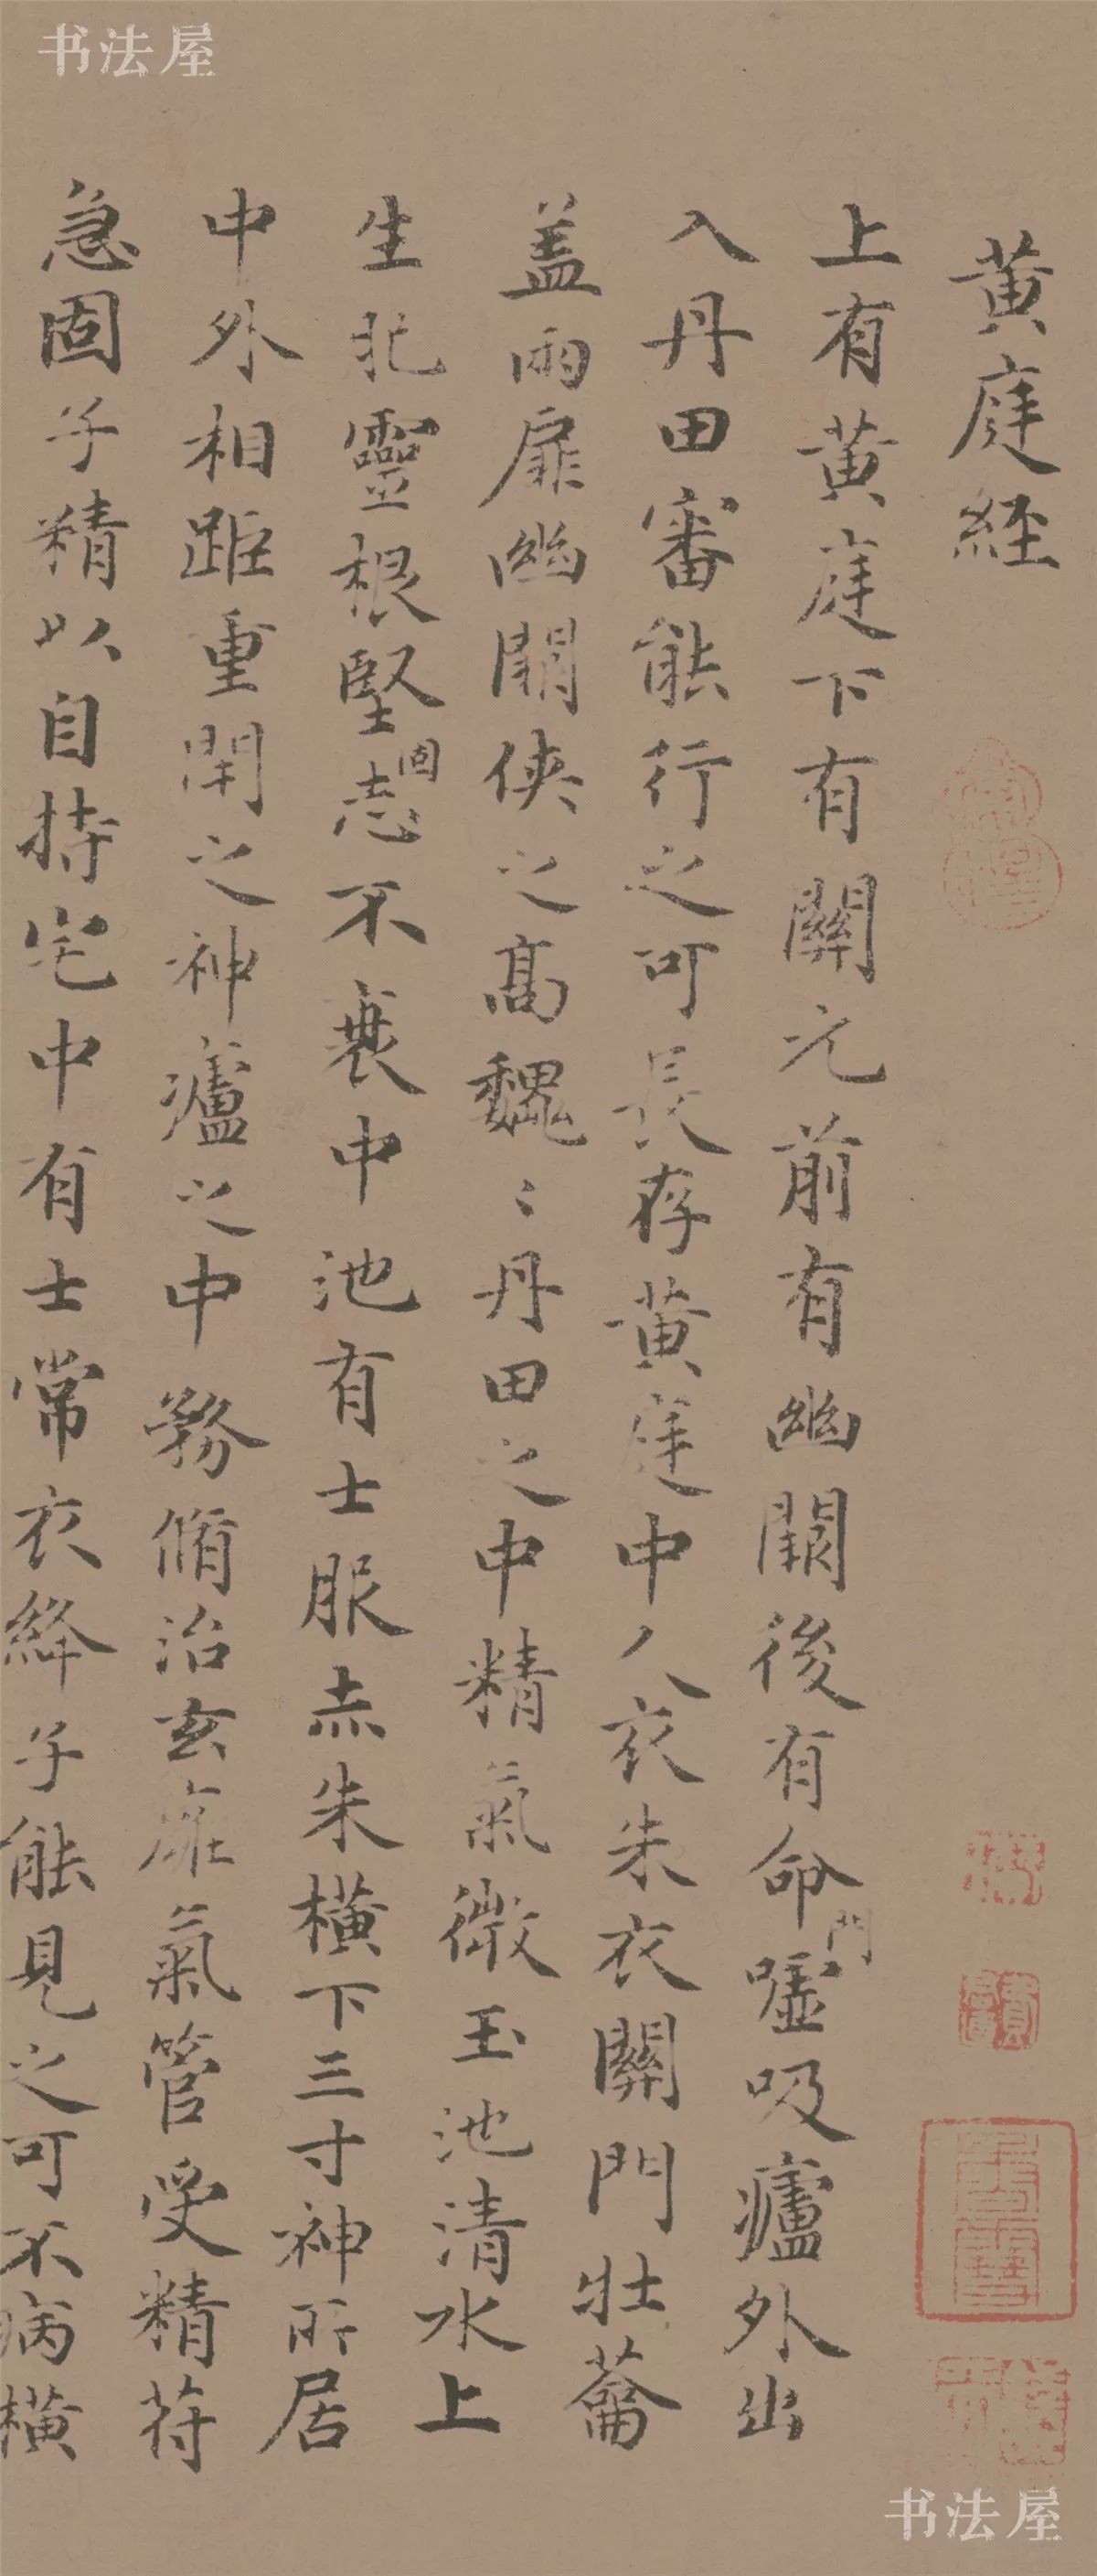 书法屋
黄庭経
上有黄庭下有關元前有幽闕後有命門噓吸廬外出
入丹田審能行之可長存黄庭中人衣朱衣關門壮蘥
盖兩扉幽關俠之髙魏〻丹田之中精氣微玉池清水上
生肥靈根堅固志不衰中池有士服赤朱橫下三寸神所居
中外相距重閇之神廬之中務脩治玄雍氣管受精符
急固子精以自持宅中有士常衣絳子能見之可不病橫
书法屋